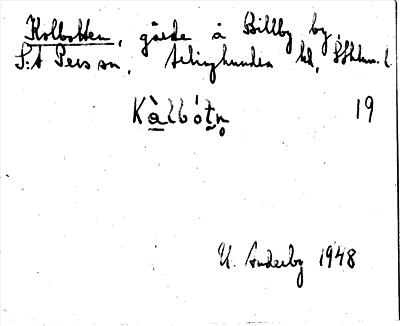 Kolbotten, gärde å Billby by,
S:t Pers sn, Selinghundra hd, Sthlm. l
Kàlbótn̥ 19
U. Sunderby 1948